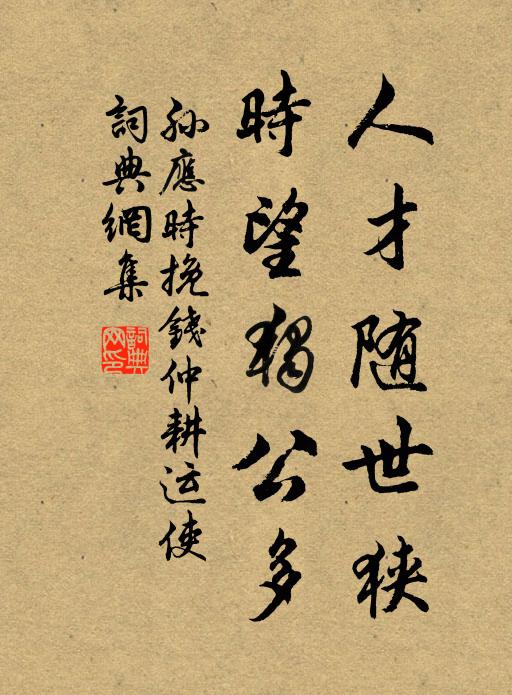 人才随世狹
時望獨公多
孫應時挽錢仲耕运使
詞典網集
詞典网印